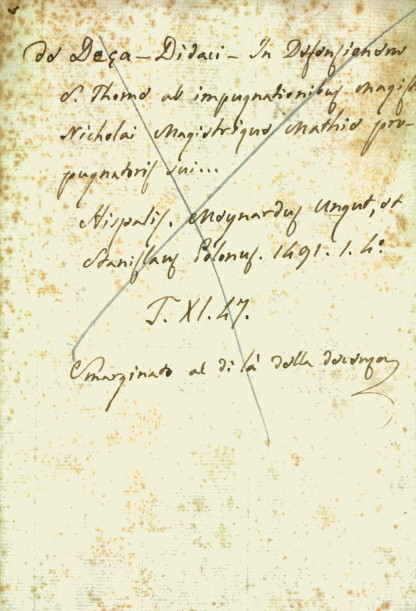 de Deça - Didaci - In Defensionem
S. Thome ab impugnationibus Magist
Nicholai Magistrique Mathie pro-
pugnatoris sui...
Hispalis. Meynardus Ungut, et
Stanislaus Polonus. 1491. 1. 4°
T. XI. 47.
Smarginato al di là della decenza